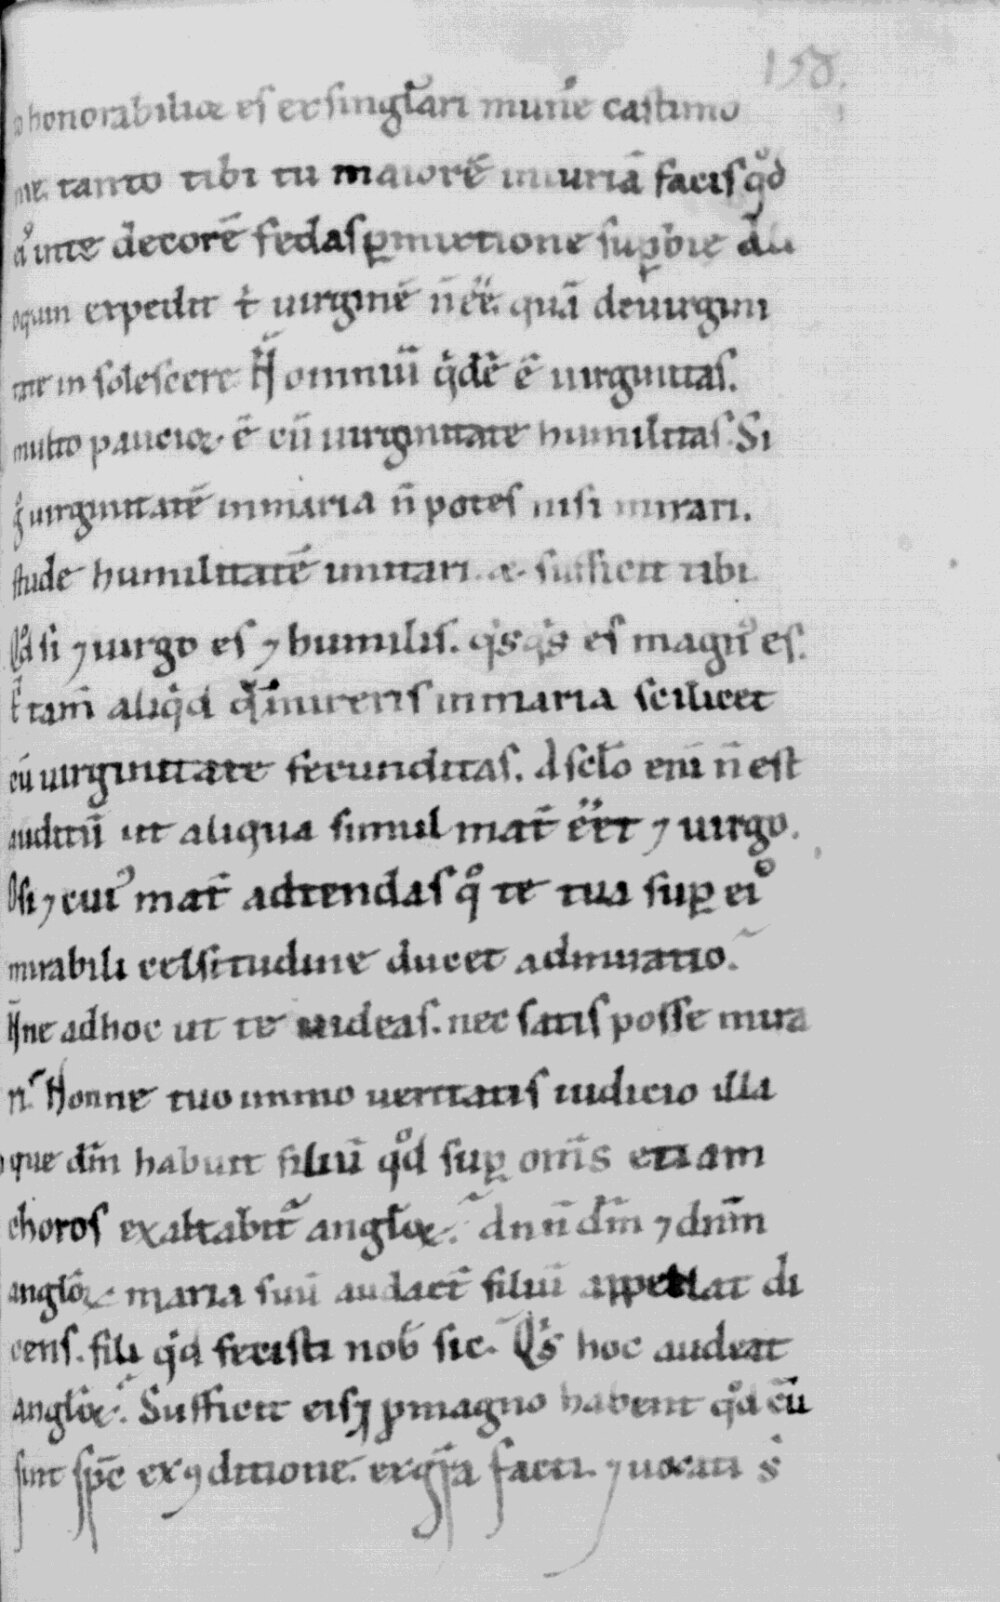 158.
honorabilior es ex singl̃ari munẽ castimo
nie. tanto tibi tu maiorẽ iniuriã facis qd̊
eĩ in te decorẽ fedas ꝑmixtione suꝑbię ali
oquin expedit t̃ uirginẽ ñ ẽẽ. quã de uirgini
tate insolescere. Ñ omniũ qi̇dẽ ẽ uirginitas.
multo paucioꝝ ẽ cũ uirginitate humilitas. Si
g̊ uirginitatẽ in maria ñ potes nisi mirari.
stude humilitatẽ imitari. & sufficit tibi.
Qd̊ si ⁊ uirgo es ⁊ humilis. qi̇sqi̇s es magnꝰ es.
Ẽ tam̃ aliqi̇d qd̊ mireris in maria scilicet
cũ uirginitate fecunditas. A sclo̅ eni̅ ñ est
auditũ ut aliqua simul mat̃ ẽẽt ⁊ uirgo.
O si ⁊ cuiꝰ mat̃ adtendas q̊ te tua suꝑ eiꝰ
mirabili celsitudine ducet admiratio.
Ñne adhoc ut te uideas. nec satis posse mira
ri. Nonne tuo immo ueritatis iudicio illa
que dm̃ habuit filiũ qd̊ suꝑ om̃s etiam
choros exaltabit̃ anglo̅ꝝ. dñ dm̃ ⁊ dnm̃
anglo̅ꝝ maria suũ audact̃ filiũ appellat di
cens. fili qi̇d fecisti nob̃ sic. Qi̇s hoc audeat
anglo̅ꝝ. Sufficit eis ⁊ ꝑ magno habent qd̊ cũ
sint spc̃ ex ꝯditione. ex gr̃a facti. ⁊ uocati s̃